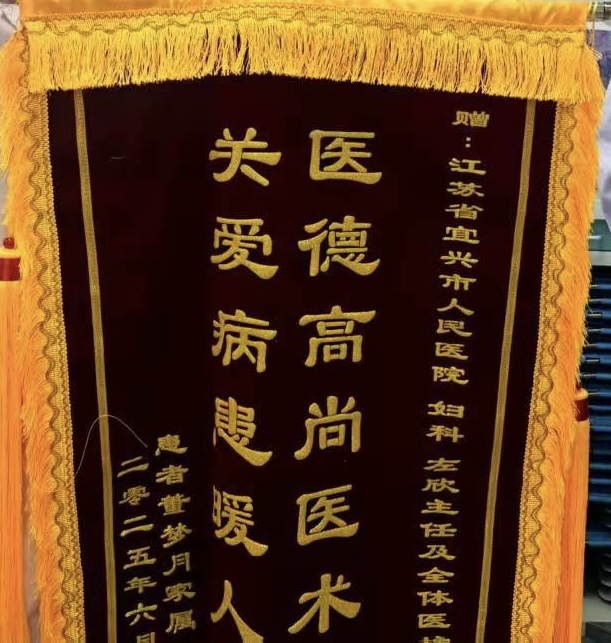 赠：江苏省宜兴市人民医院 妇科 左欣主任及全体医
医德高尚医术
关爱病患暖人
患者董梦月家属
二零二五年六月